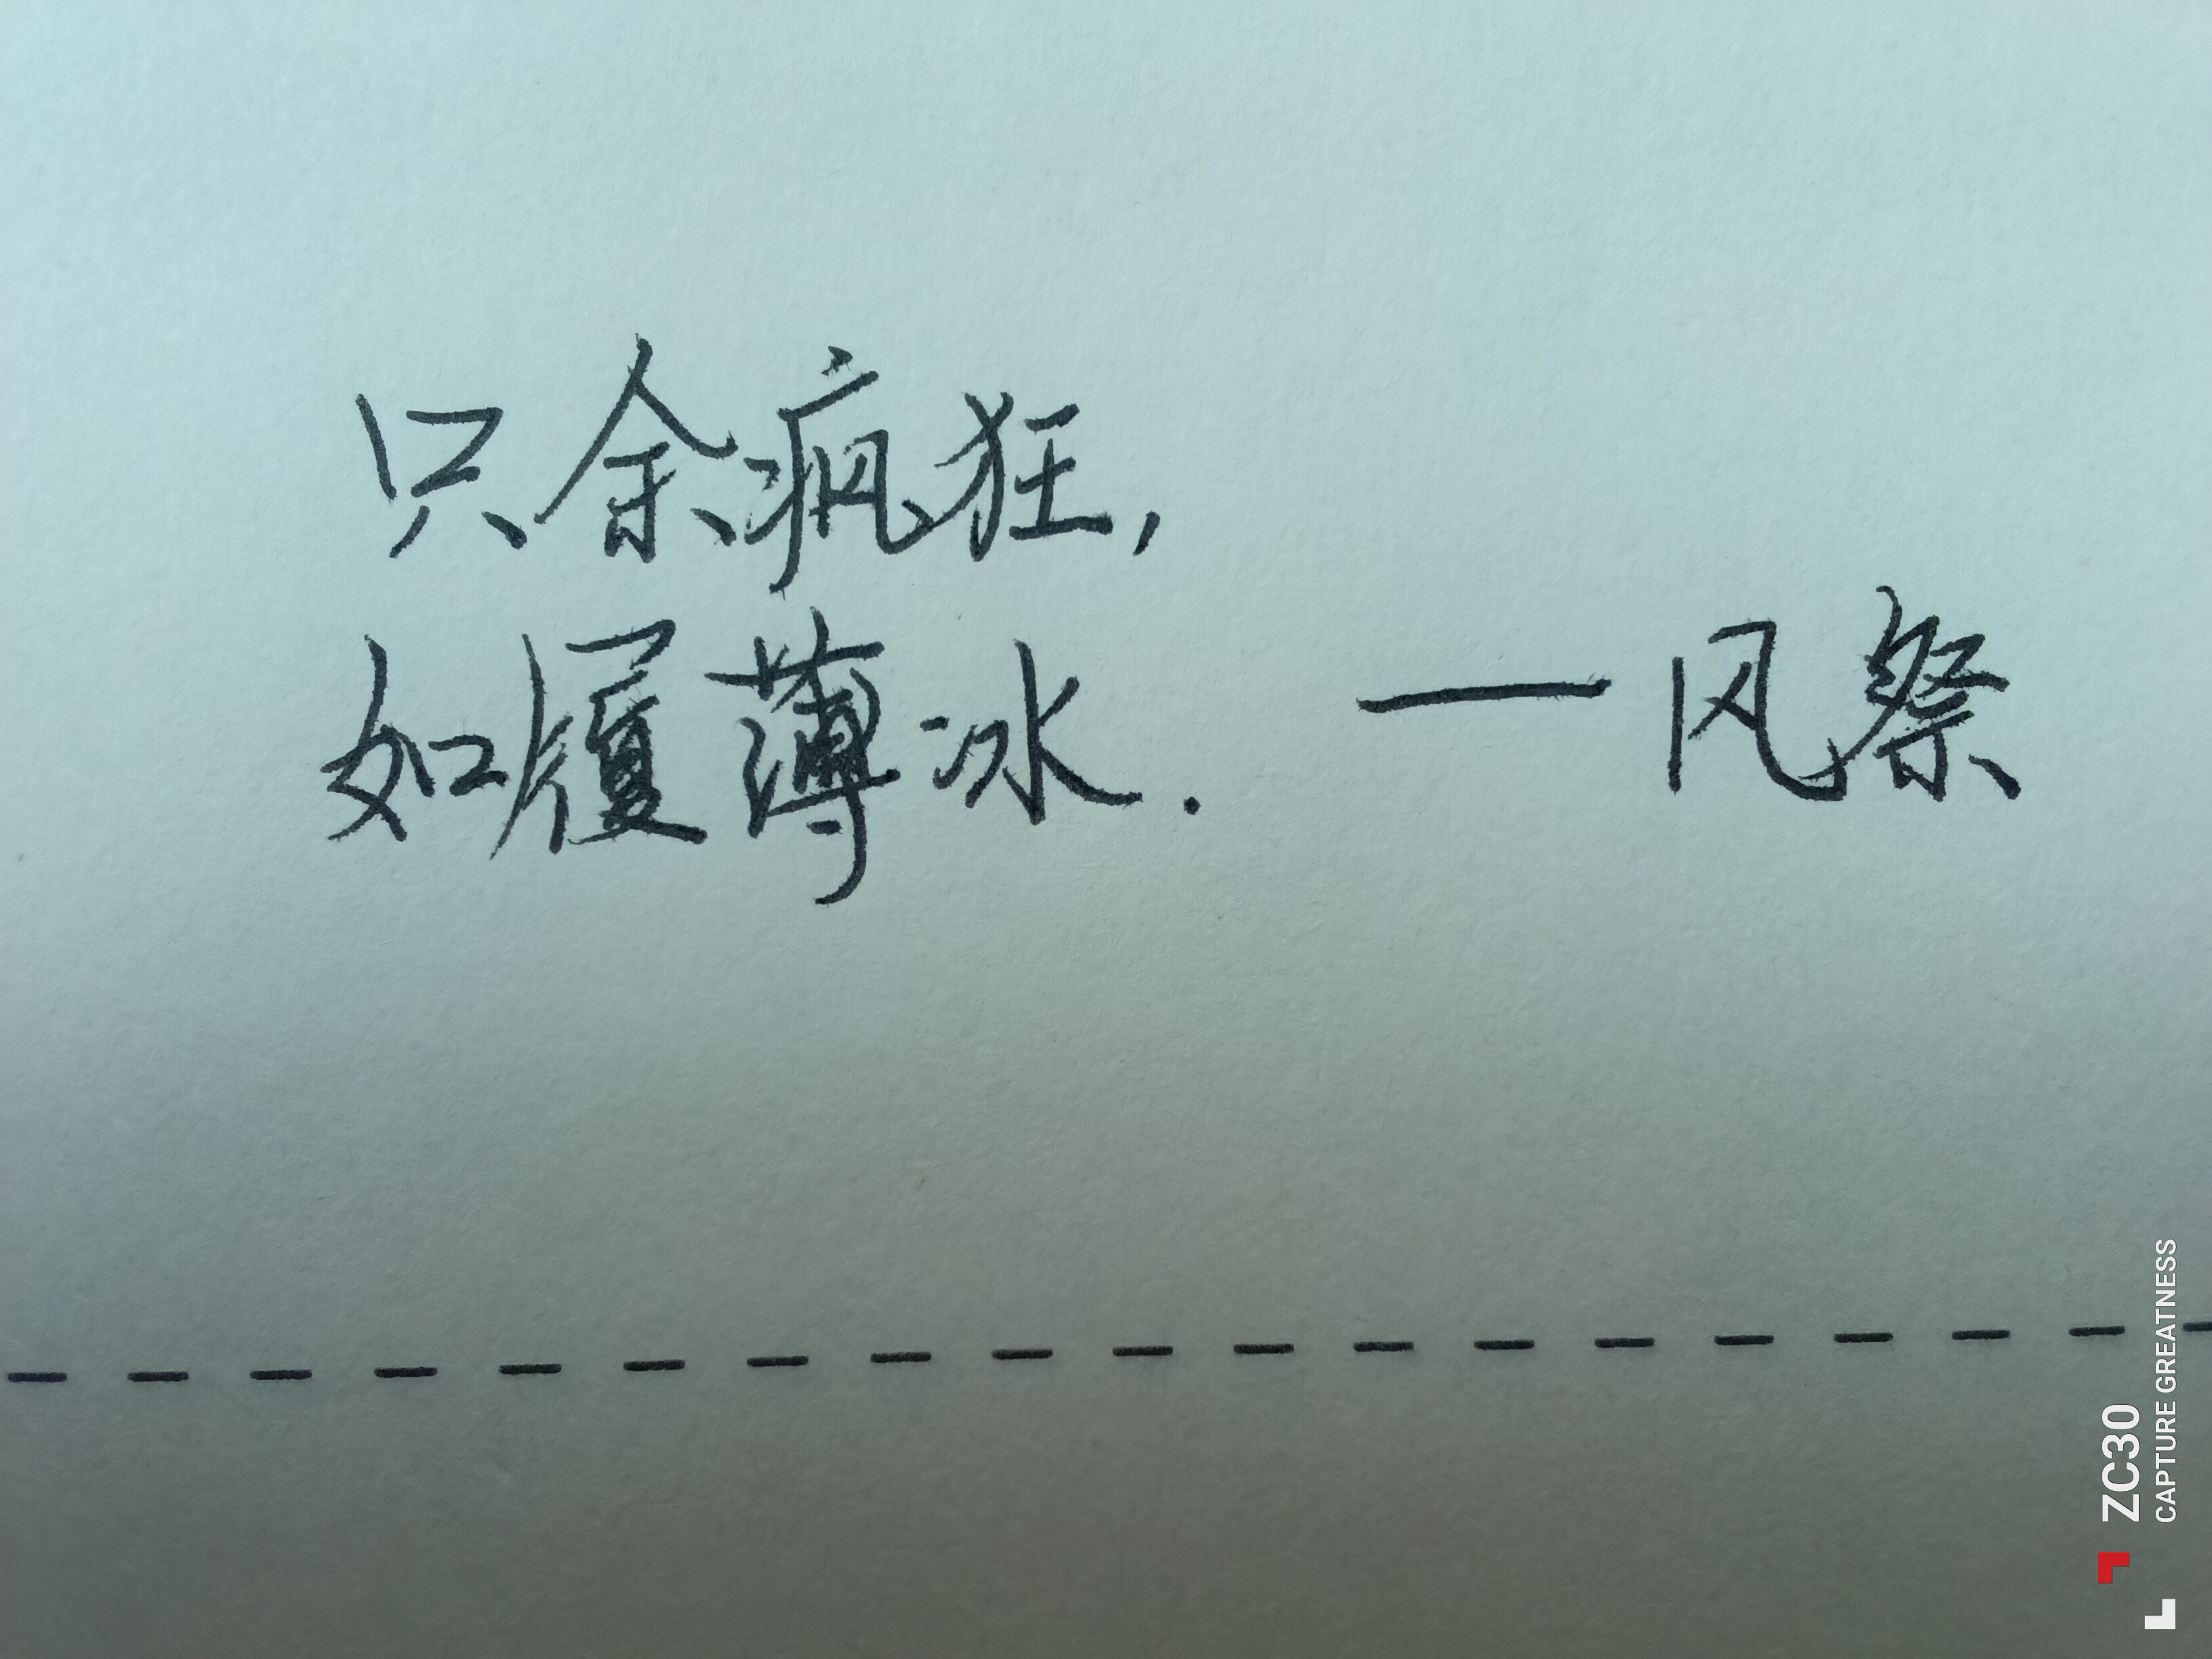 只余疯狂,
如履薄冰.
—风祭
ZC30
CAPTURE GREATNESS